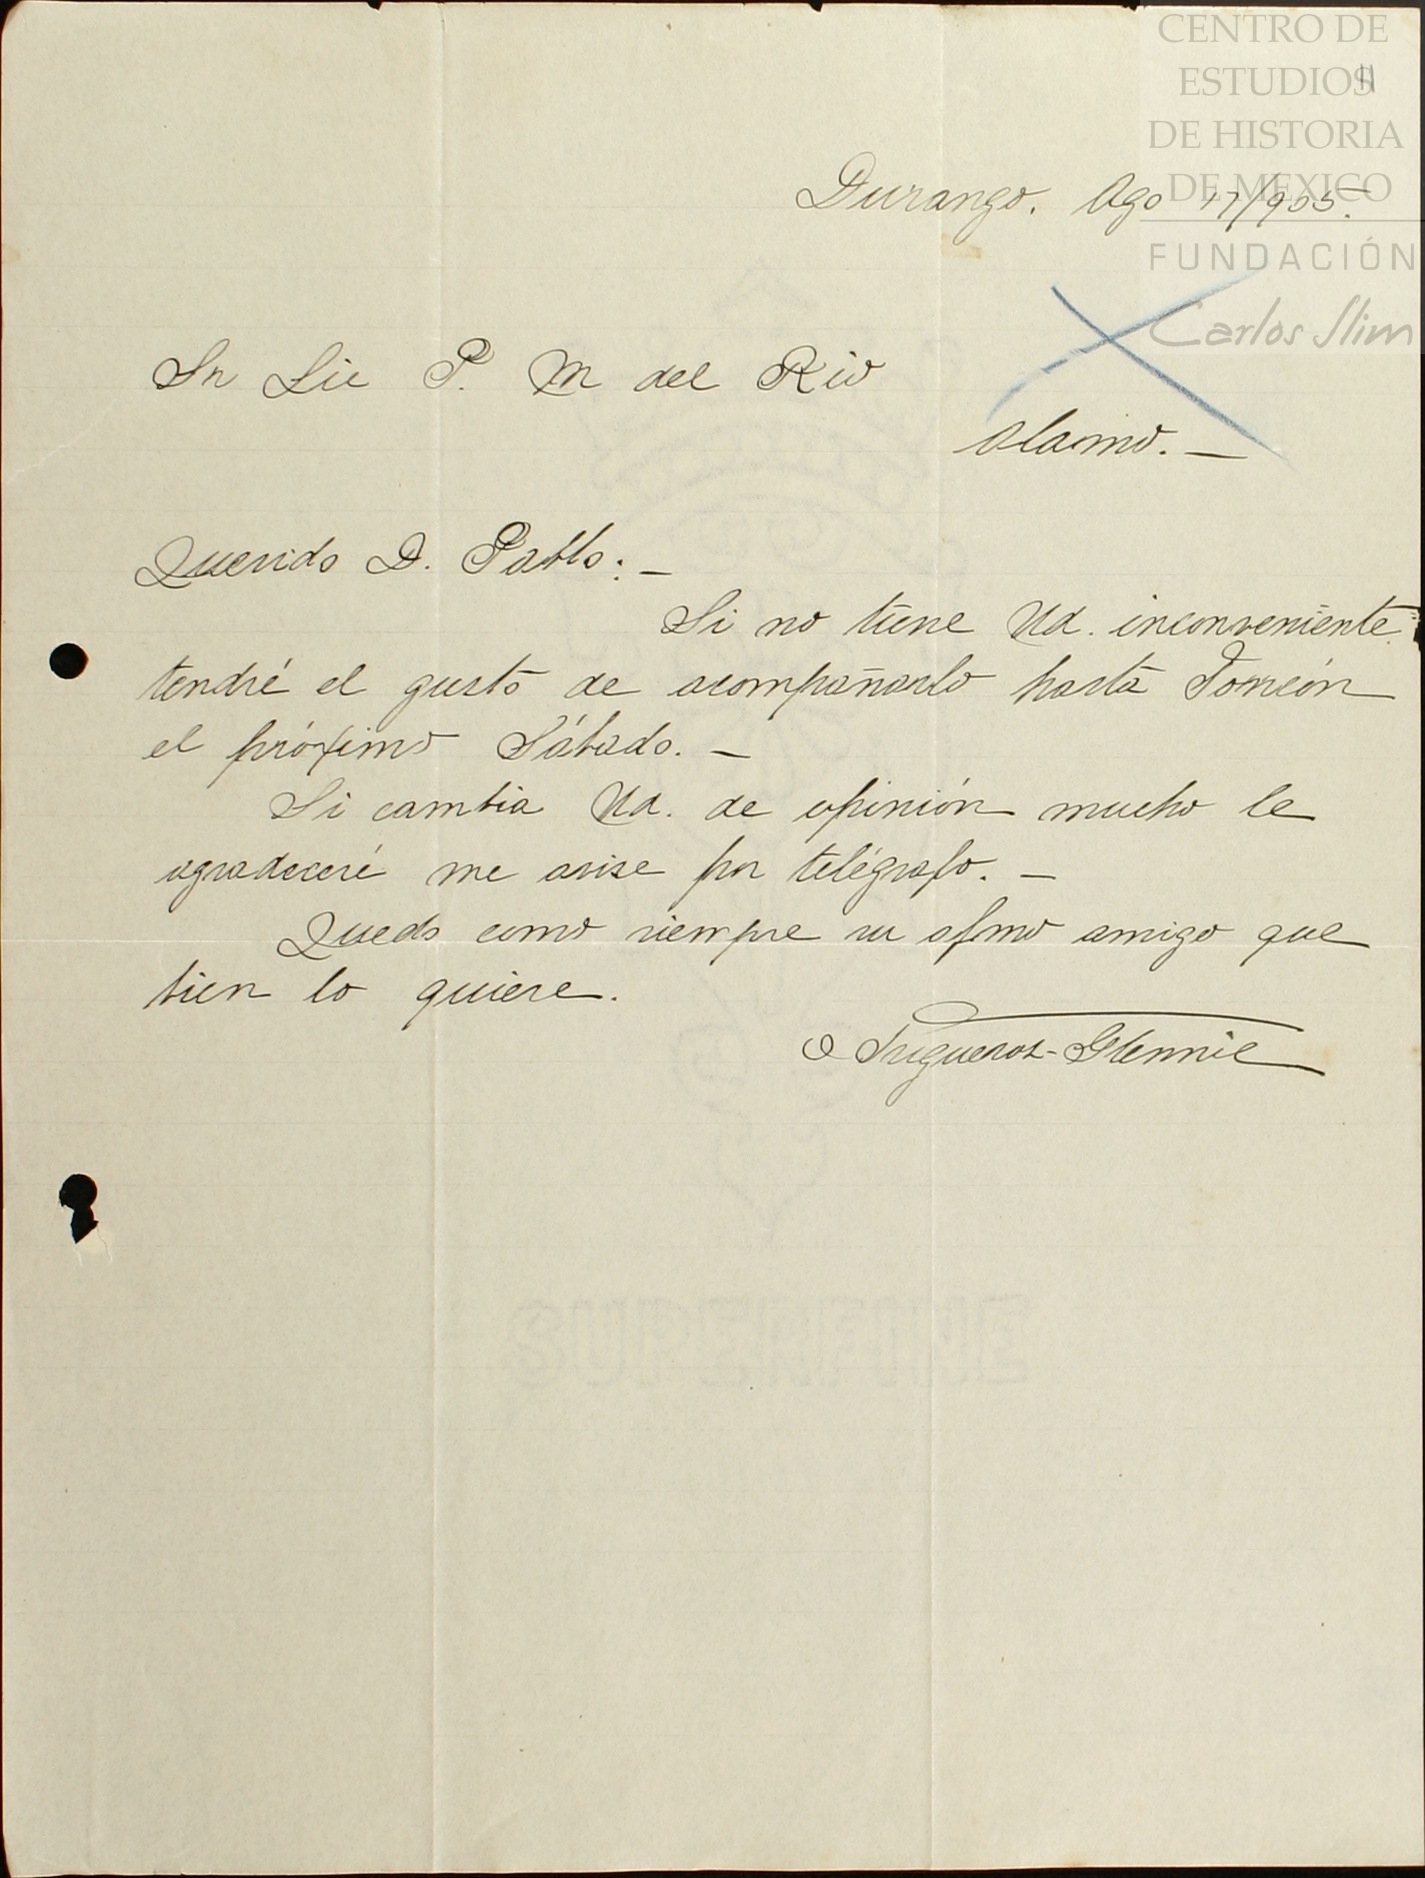 CENTRO DE
ESTUDIOS
DE HISTORIA
DE MEXICO
FUNDACIÓN
Carlos Slim
11
Durango. Ago 17/905.
Sr Lic P. M del Rio
Alamo. —
Querido D. Pablo: —
Si no tiene Ud. inconveniente
tendré el gusto de acompañarlo hasta Torreón
el próximo Sábado. —
Si cambia Ud. de opinión mucho le
agradeceré me avise por telégrafo. —
Quedo como siempre su afmo amigo que
bien lo quiere.
Trigueros-Glennie